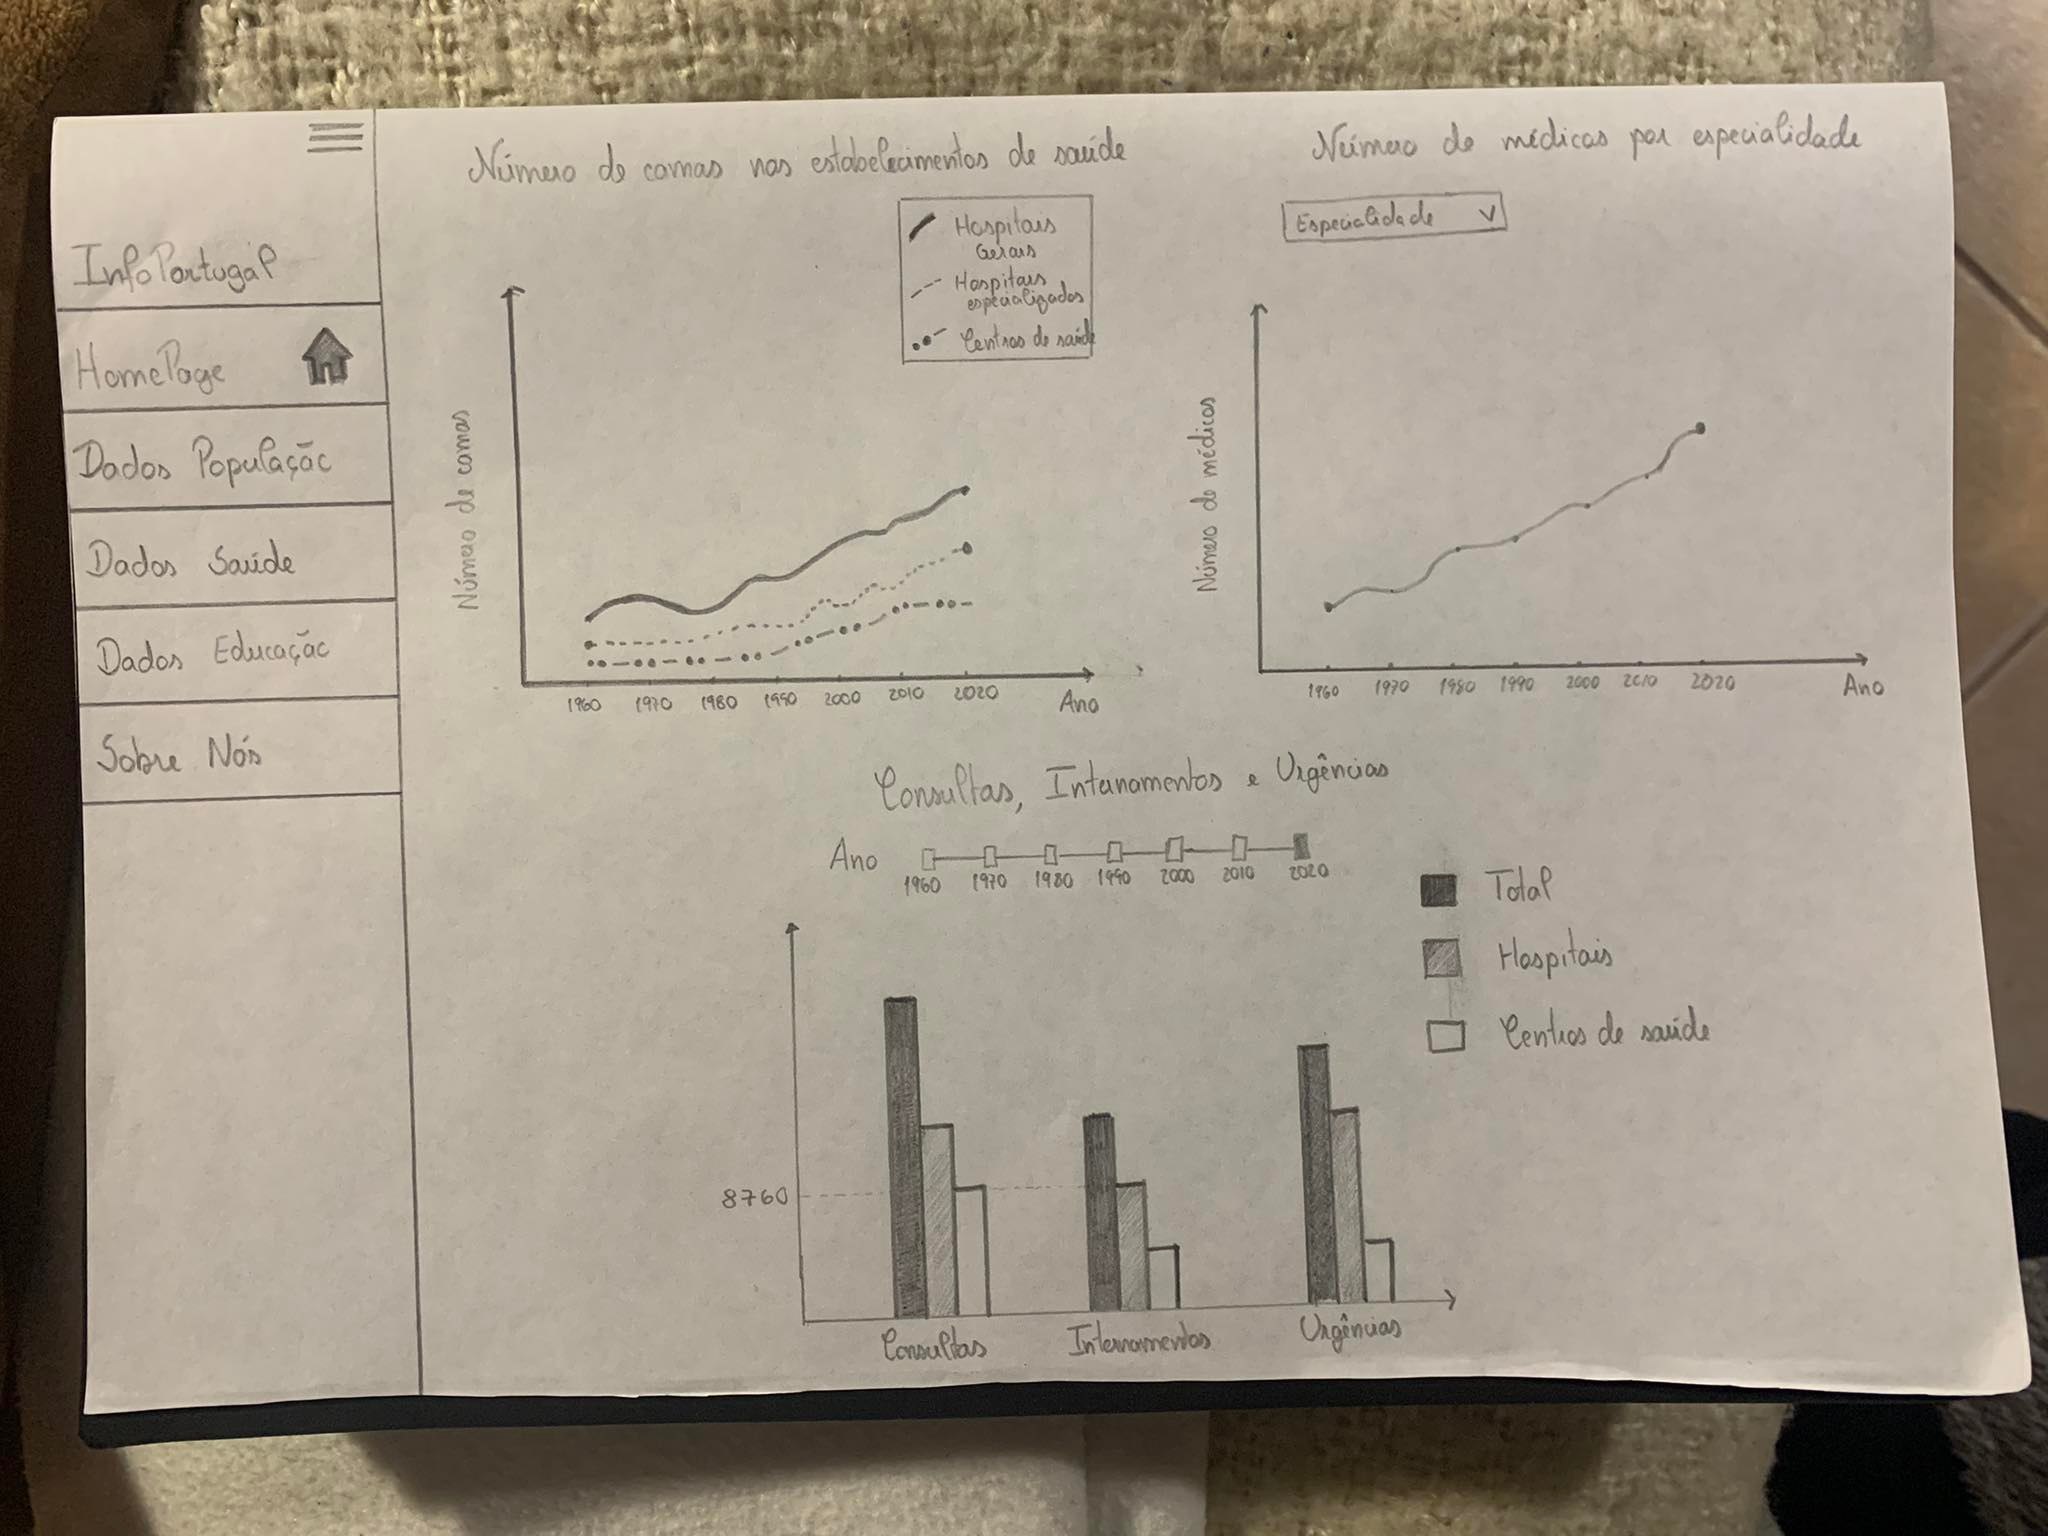 InfoPortugal
HomePage
Dados População
Dados Saúde
Dados Educação
Sobre Nós
Número de camas nos estabelecimentos de saúde
Hospitais
Gerais
Hospitais
especializados
Centros de saúde
Número de camas
1960 1970 1980 1990 2000 2010 2020
Ano
Número de médicos por especialidade
Especialidade V
Número de médicos
1960 1970 1980 1990 2000 2010 2020
Ano
Consultas, Internamentos e Urgências
Ano
1960 1970 1980 1990 2000 2010 2020
Total
Hospitais
Centros de saúde
8760
Consultas Internamentos Urgências